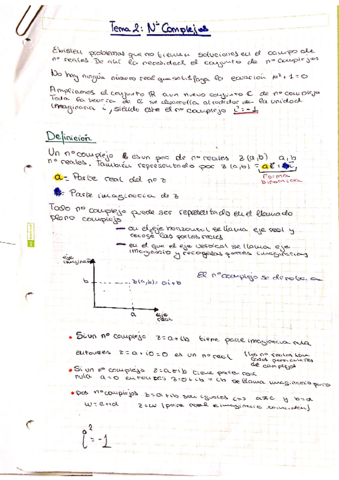 Tema 2: Nº Complejos
Existen problemas que no tienen soluciones en el campo de
nº reales De ahí la necesidad el conjunto de nº complejos
No hay ningún número real que satisfaga la ecuación x²+1=0
Ampliamos el conjunto R a un nuevo conjunto C de nº complejo
Toda la teoría de C se desarrolla alrededor de la unidad
imaginaria i, siendo este el nº complejo i²=-1
Definición
Un nº complejo es un par de nº reales z(a,b) a,b
nº reales. También representado por z(a,b)=a+ib
forma
binómica
a= Parte real del nº z
b= Parte imaginaria de z
Todo nº complejo puede ser representado en el llamado
plano complejo
en el eje horizontal se llama eje real y
recoge las partes reales
en el que el eje vertical se llama eje
imaginario y recoge las partes imaginarias
eje
imaginario
El nº complejo se denota
b
z(a,b)=a+ib
a
eje
real
• Si un nº complejo z=a+ib tiene parte imaginaria nula
entonces z=a+i0=a es un nº real
• Si un nº complejo z=a+ib tiene parte real
nula a=0 entonces z=0+ib=ib se llama imaginario puro
• Dos nº complejos z=a+ib son iguales a=c y b=d
w=c+id z=w (parte real e imaginaria coinciden)
i²=-1